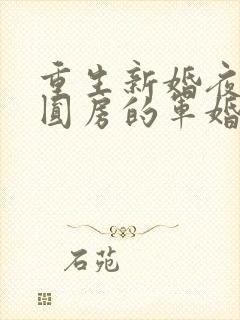 重生新婚夜
圆房的军婚
石苑